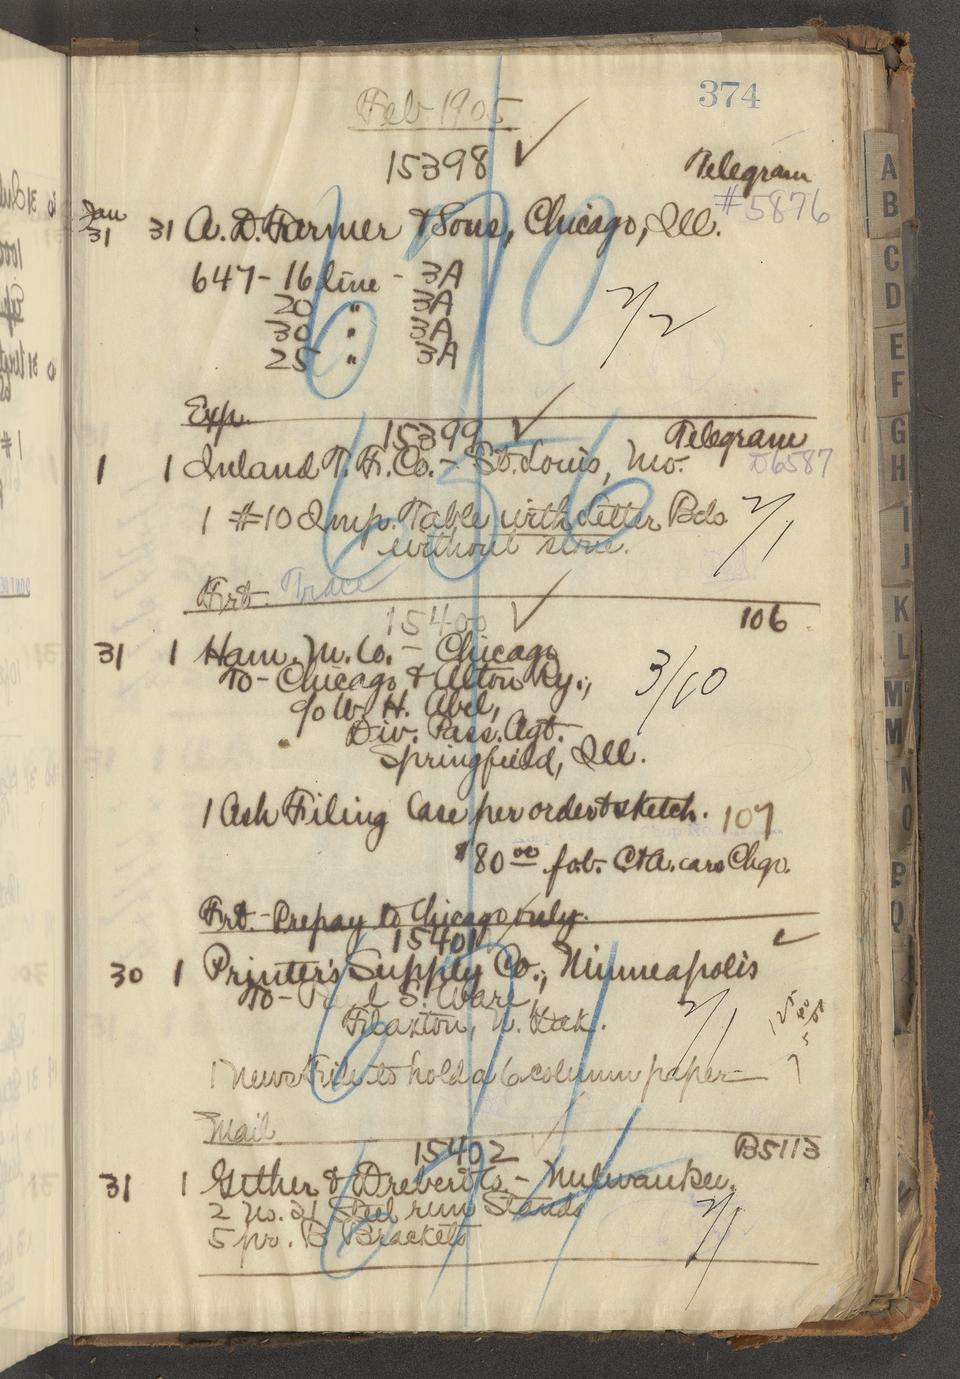 374
Feb 1905
15398 ✓
Telegram
#5876
Jan
31 31 A. D. Farmer & Sons, Chicago, Ill.
647 - 16 line - 3A
20 " 3A
30 " 3A
25 " 3A
2/2
670
Exp.
15399 ✓
Telegram
D6587
1 1 Inland T. F. Co. - St. Louis, Mo.
1 #10 Imp. Table with letter Bds
without
2/1
656
Frt. Trace
15400 ✓
106
31 1 Ham. M. Co. - Chicago
To - Chicago & Alton Ry.,
c/o W. H. Abel,
Div. Pass. Agt.
Springfield, Ill.
3/10
1 Ash Filing Case per order & sketch. 107
$80 00 f.o.b. C&A. cars Chgo.
Frt. - Prepay to Chicago only.
15401 ✓
30 1 Printer's Supply Co., Minneapolis
To - S. Ware,
Flaxton, N. Dak.
2/1
1 News File to hold a 6 column paper
Mail
15402
B5113
31 1 Gether & Drevert Co. - Milwaukee.
2 No. 21 Steel run Stands
5 pr. B Brackets
2/1